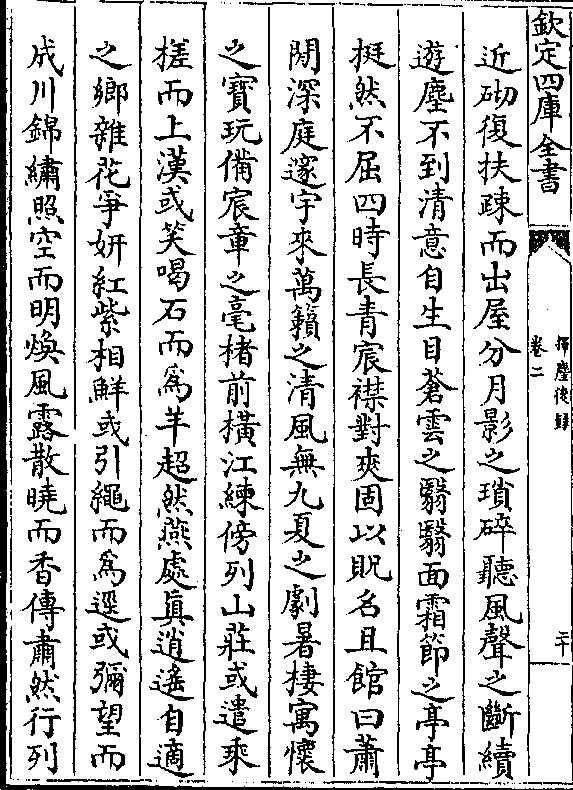 欽定四庫全書
揮麈後録
卷二
二十
近砌復扶踈而出屋分月影之瑣碎聽風聲之斷續
遊塵不到清意自生目蒼雲之翳翳面霜節之亭亭
挺然不屈四時長青宸襟對爽固以貺名且館曰蕭
閒深庭邃宇來萬籟之清風無九夏之劇暑棲寓懷
之寶玩備宸章之毫楮前橫江練傍列山莊或遣乘
槎而上漢或笑喝石而為羊超然燕處真逍遙自適
之鄉雜花爭妍紅紫相鮮或引繩而為逕或彌望而
成川錦繡照空而明煥風露散曉而香傳肅然行列